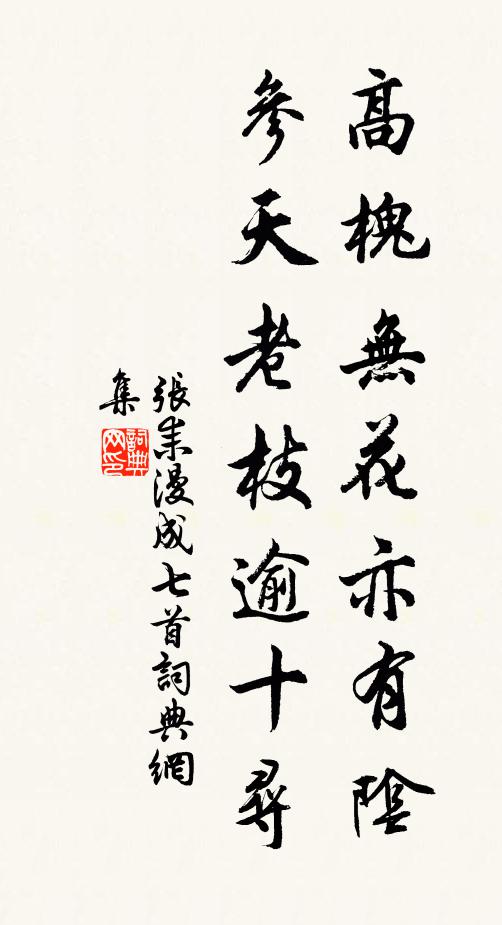 高槐無花亦有陰
參天老枝逾十尋
張耒漫成七首詞典網
集
詞典
网印